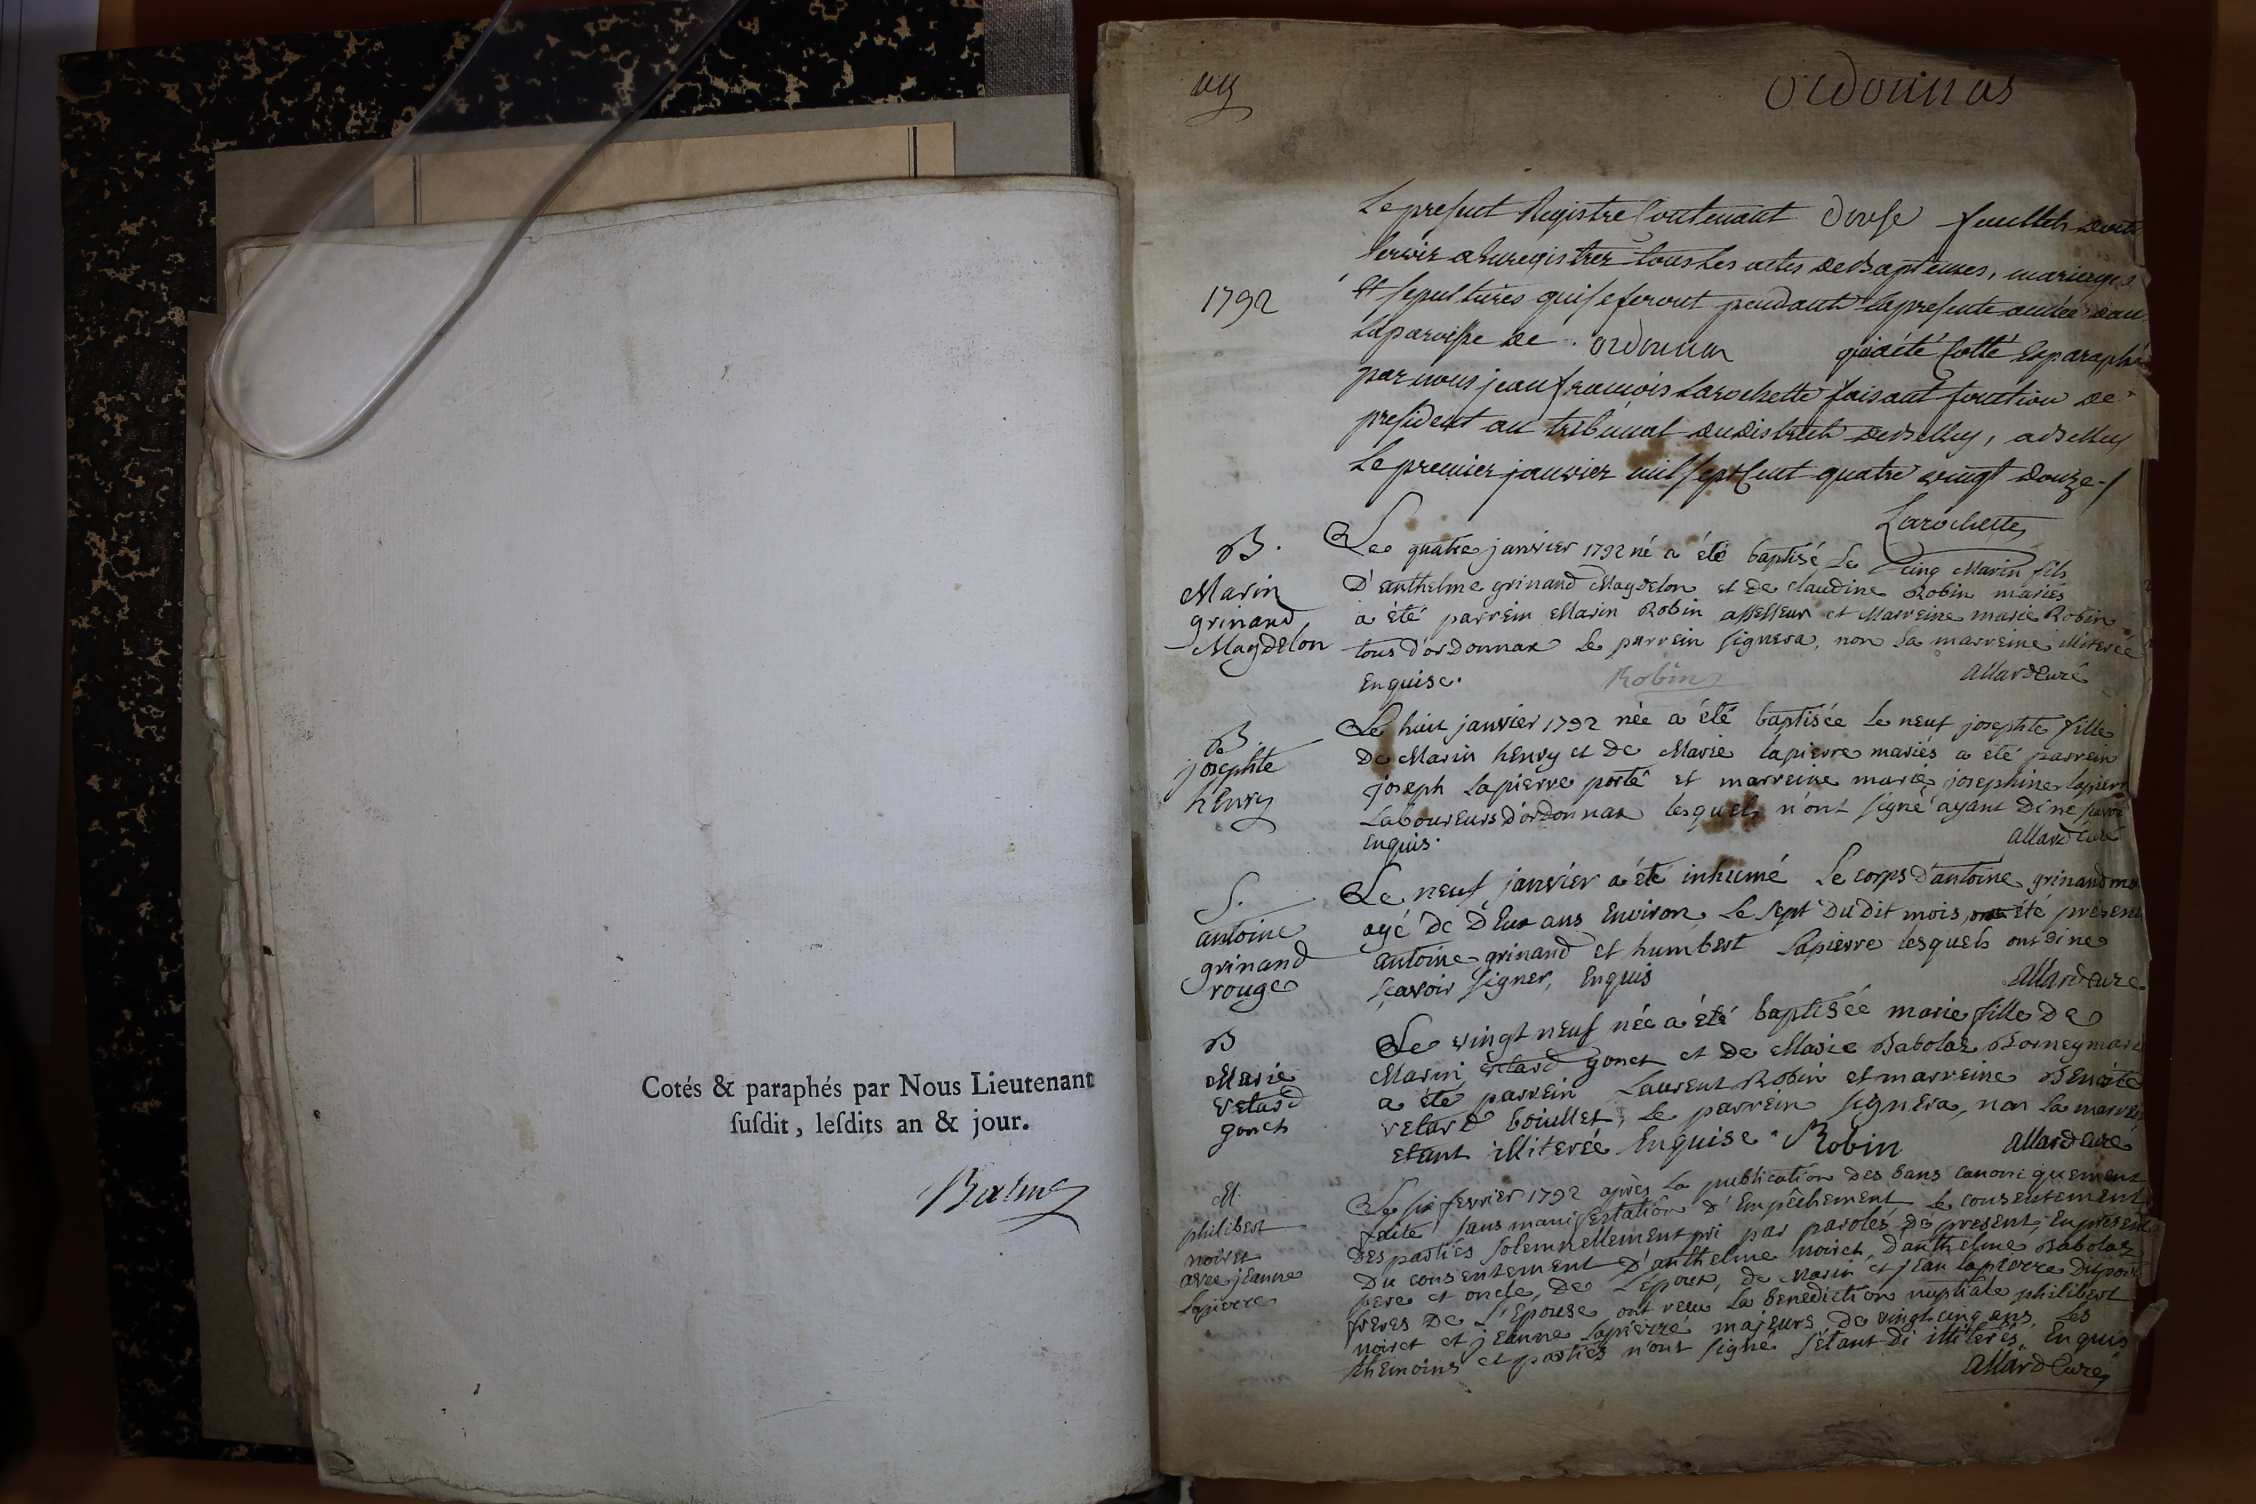 Cotés & paraphés par Nous Lieutenant
ſuſdit, leſdits an & jour.
Balme
ordonnas
Le present Registre Contenant douse feuillets devant
servir a Enregistrer tous les actes de Baptemes, mariages
1792
et sepultures qui se feront pendant la presente année dans
la paroisse de ordonnas qui a été Cotté et paraphé
par nous jean françois Larochette faisant fonction de
president au tribunal du district de Belley, a Belley
Le premier janvier mil sept Cent quatre vingt douze
Larochette
B.
Marin
grinand
Magdelon
Le quatre janvier 1792 né a été baptisé Le cinq Marin fils
D'anthelme grinand Magdelon et de claudine Robin mariés
a été parrein Marin Robin assesseur et Marreine marie Robin
tous d'ordonnax Le parrein signera, non La marreine illiterée
Enquise. Robin allard curé
B.
josephte
henry
Le huit janvier 1792 née a été baptisée Le neuf josephte fille
De Marin henry et De Marie lapierre mariés a été parrein
joseph Lapierre porté et marreine marie josephine lapierre
Laboureurs d'ordonnax lesquels n'ont signé ayant di ne savoir
enquis. allard curé
S.
antoine
grinand
rouge
Le neuf janvier a été inhumé Le corps d'antoine grinand
agé de Deux ans Environ Le sept Du dit mois, été présent
antoine grinand et humbert Lapierre lesquels ont di ne
sçavoir signer, Enquis allard curé
B
Marie
velard
gonet
Le vingt neuf née a été baptisée marie fille De
Marin velard gonet et de Marie Babolaz Borney mariés
a été parrein Laurent Robin et marreine Benoite
velard bouillet, Le parrein signera, non La marreine
etant illiterée Enquise Robin allard curé
M.
philibert
noiret
avec jeanne
Lapierre
Le six fevrier 1792 après La publication des bans canoniquement
faite sans manifestation d'Empêchement, Le consentement
Des parties solemnellement pri par paroles de present, En présence
Du consentement D'anthelme noiret, D'anthelme Babolaz
pere et oncle, De L'Epoux, de Marin et jean Lapierre
freres De L'Epouse ont reçu La benediction nuptiale philibert
noiret et jeanne Lapierre majeurs de vingt cinq ans. Les
themoins et parties n'ont signé s'étant Di illiterés, Enquis
allard Curé